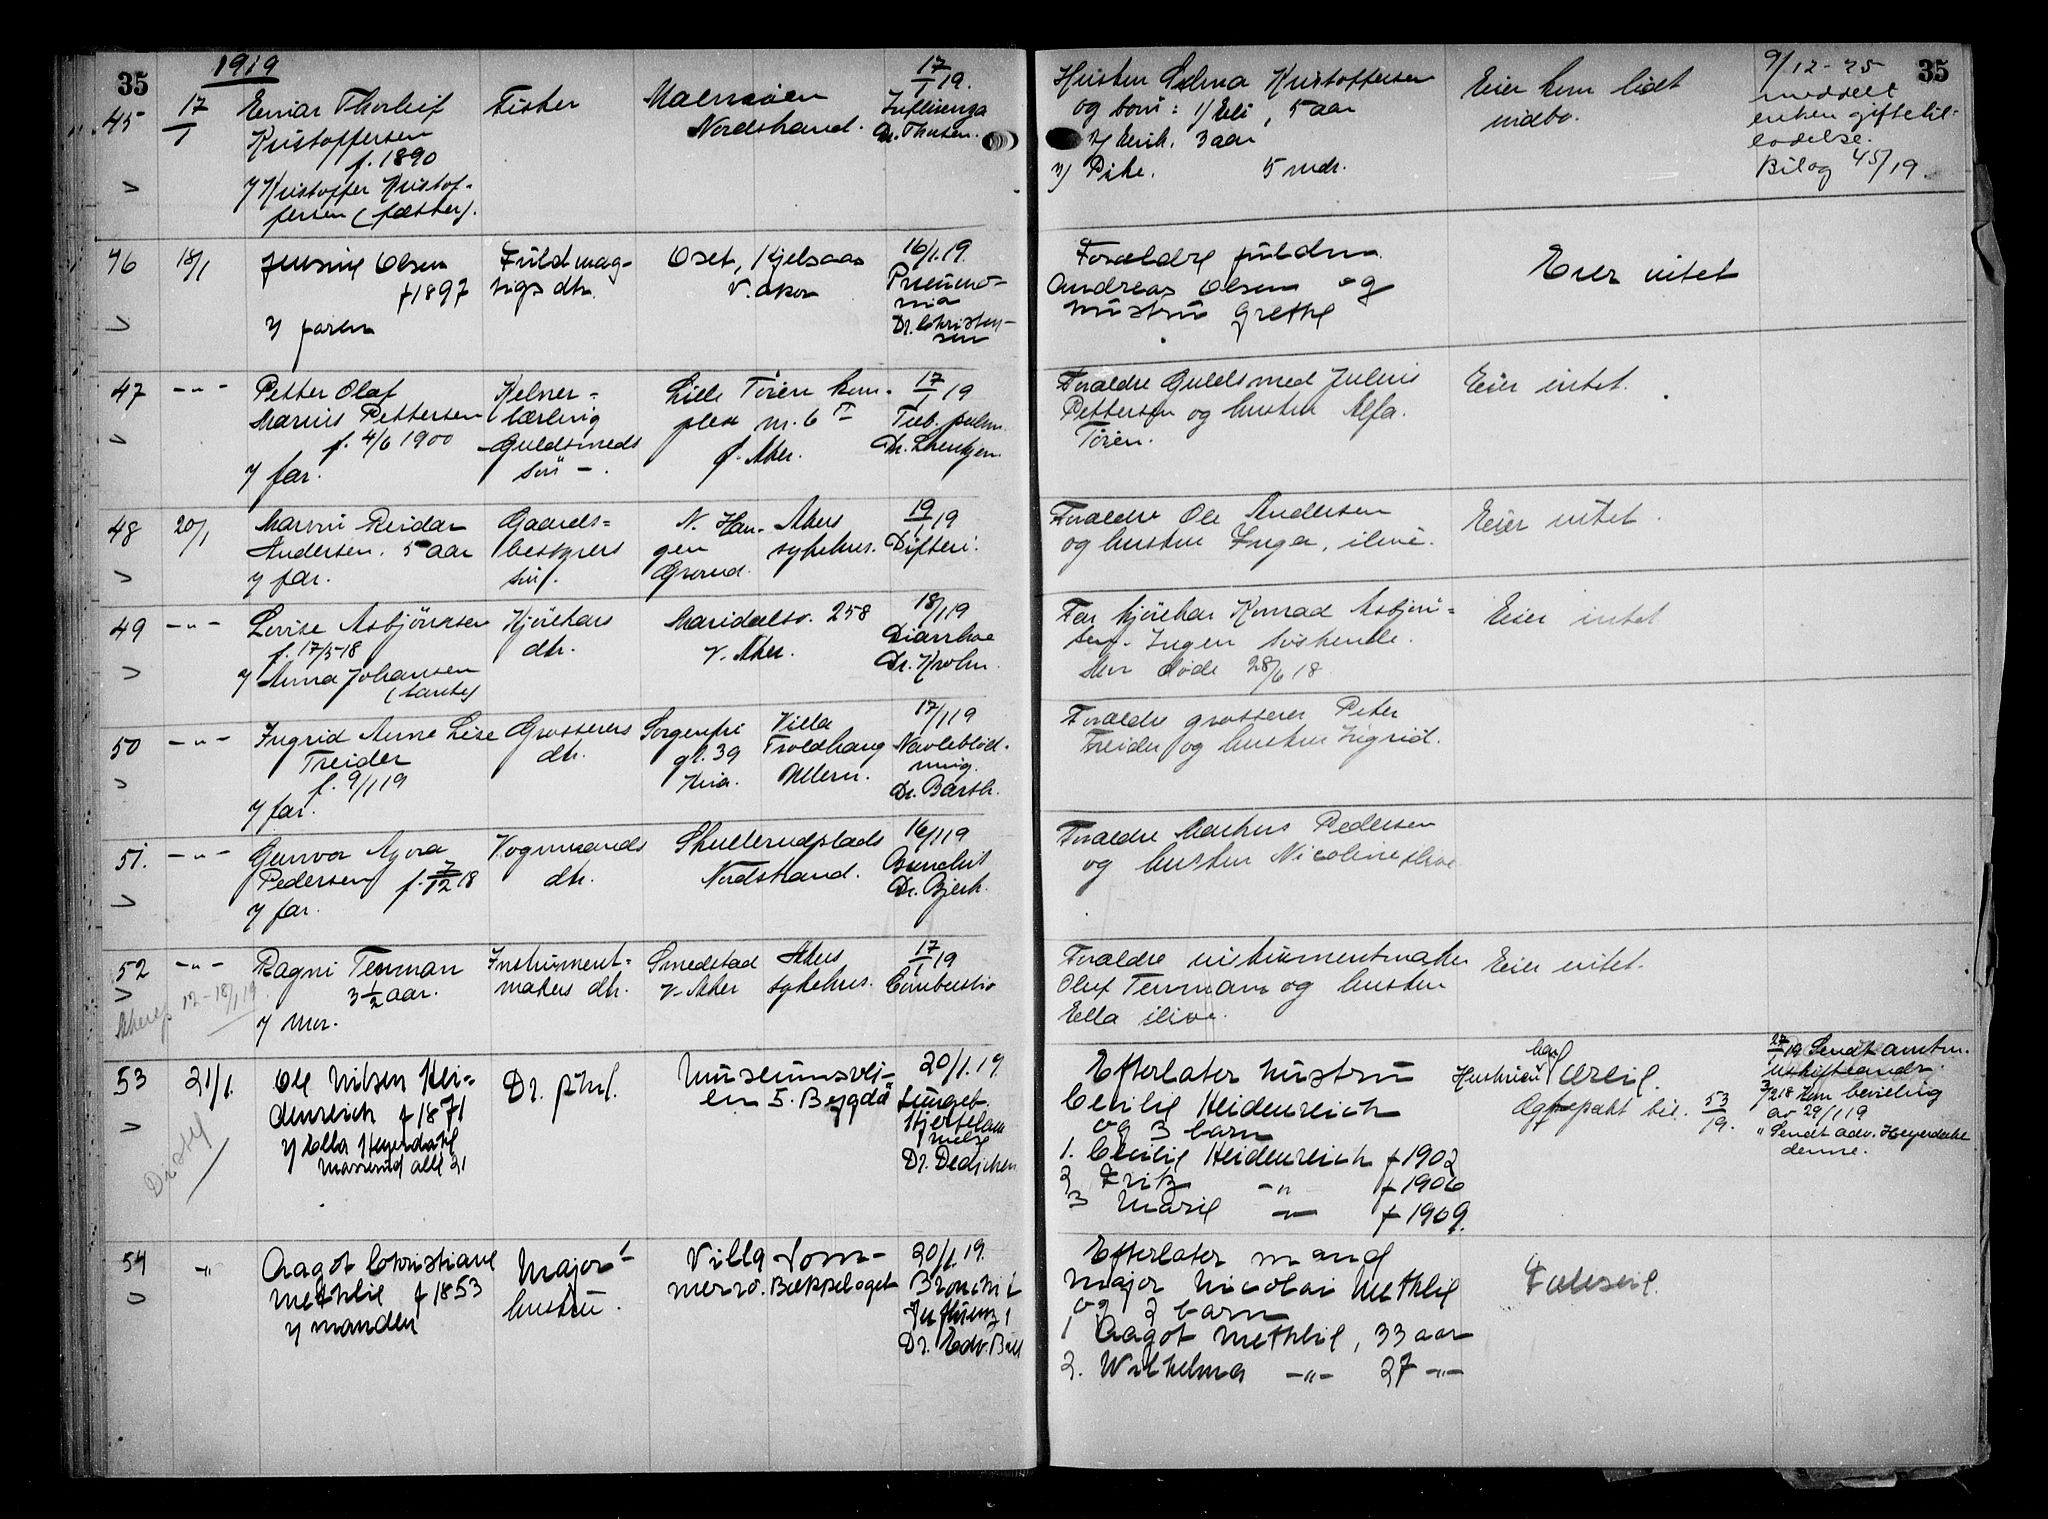 35
1919
45 17/1 Einar Thorleif Fisker Malmøen 17/1 19.
Kristoffersen Nordstrand. Influenza
f. 1890 Dr. Thersen.
v/ Kristoffer Kristof-
fersen (fætter).
Hustru Selma Kristoffersen Eier kun lidt 9/12-25 35
og barn: 1/ Eli, 5 aar indbo. meddelt
2/ Erik. 3 aar enken giftetil-
3) Pike. 5 mdr. ladelse.
Bilag 45/19.
46 18/1 Jensine Olsen Fuldmæg- Oset, Kjelsaas 16/1.19.
f 1897 tigs dtr. V. Aker Pneumo-
nia
v/ faren Dr. Christen-
sen
Forældre fuldm. Eier intet
Andreas Olsen og
hustru Grethe
47 -"- Petter Olaf Kelner- Lille Tøien kom- 17/1 19
Marius Pettersen lærling pleks nr. 6 I Tub. pulm.
f. 4/6 1900 Guldsmeds Ø. Aker.
v/ far. søn -.
Forældre Guldsmed Julius Eier intet.
Pettersen og hustru Alfa.
Tøien.
48 20/1 Marvin Reidar Gaards- N. Hau- Akers 19/1 19
Andersen. 5 aar bestyrers gen sykehus. Difteri.
v/ far. søn. Grorud.
Forældre Ole Andersen Eier intet.
og hustru Inga, ilive.
49 -"- Lovise Asbjörnsen Kjørekars Maridalsv. 258 18/1 19
f. 17/5-18 dtr. V. Aker. Diarrhoe
v/ Anna Johansen Dr. Krohn.
(tante)
Far kjørekar Konrad Asbjörn- Eier intet
sen. Ingen søskende.
Mor døde 28/6 18.
50 -"- Ingrid Anne Lise Grosserers Sorgenfri Villa 17/1 19
Treider dtr. gt. 39 Troldhaug Navleblöd-
f. 9/1 19 Kria. Ullern. ning.
v/ far. Dr. Barth.
Forældre grosserer Peter
Treider og hustru Ingrid.
51. -"- Gunvor Agora Vognmands Skullerudplads 16/1 19
Pedersen f. 7/12 18 dtr. Nordstrand. Bronchit
v/ far. Dr. Bjerk.
Forældre Markus Pedersen
og hustru Nicoline ilive
52 -"- Ragni Tenman Instrument- Smedstad Akers 17/1 19
3 1/2 aar. makers dtr. V. Aker sykehus. Combustio
Akersp 12-18/1 19
v/ Mor.
Forældre instrumentmaker Eier intet.
Oluf Tenman og hustru
Ella ilive.
53 21/1. Ole Nilsen Hei- Dr. phil. Museumsvei- 20/1.19.
denreich f 1871 en 5. Bygdø Lungebet.
v/ Ella Heyerdahl Hjertelam
melse
Dr. Dedichen
Efterlater hustru Hustruen har arvet. 27/1 19 Sendt amtm.
Cecilie Heidenreich Ægtepakt bil. 53/19.
og 3 barn Kgl. bevilling
av 29/1 19
1. Cecilie Heidenreich f 1902 " Sendt adv. Heyerdahl
denne.
2 Fritz -"- f 1906
3 Marie -"- f 1909.
54 " Aagot Christiane Majors Villa Som- 20/1.19.
Methlie f 1853 hustru. merro. Bækkelaget Bronchit
v/ manden Influenza
Dr. Edv. Bull
Efterlater mand Fælleseie.
Major Nicolai Methlie
og 2 barn
1 Aagot Methlie, 33 aar
2. Wilhelma -"- 27 -"-